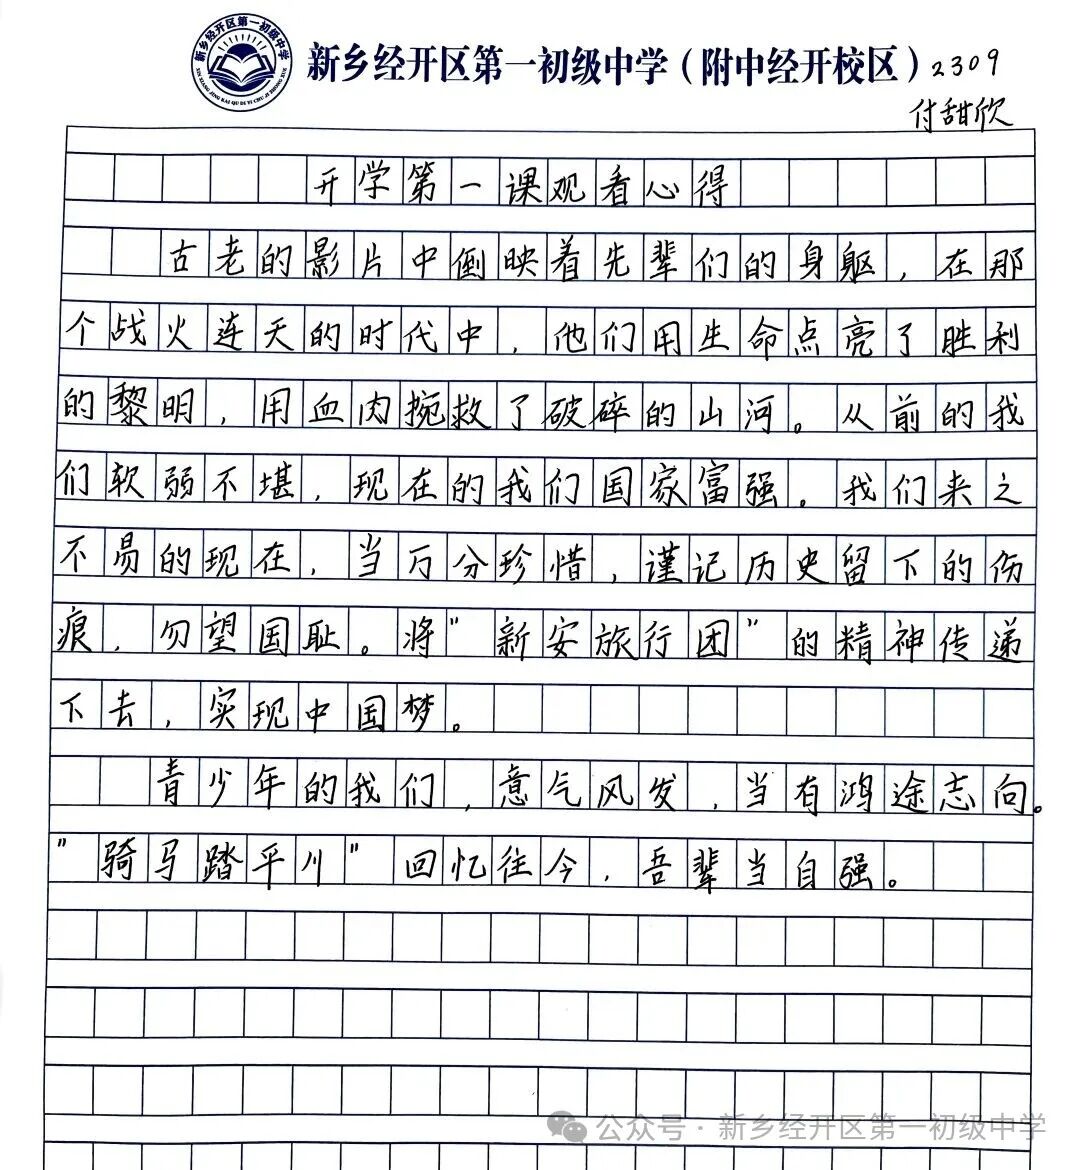 新乡经开区第一初级中学（附中经开校区）2309
付甜欣
开学第一课观看心得
古老的影片中倒映着先辈们的身躯，在那
个战火连天的时代中，他们用生命点亮了胜利
的黎明，用血肉挽救了破碎的山河。从前的我
们软弱不堪，现在的我们国家富强。我们来之
不易的现在，当万分珍惜，谨记历史留下的伤
痕，勿望国耻。将"新安旅行团"的精神传递
下去，实现中国梦。
青少年的我们，意气风发，当有鸿途志向。
"骑马踏平川"回忆往今，吾辈当自强。
公众号·新乡经开区第一初级中学